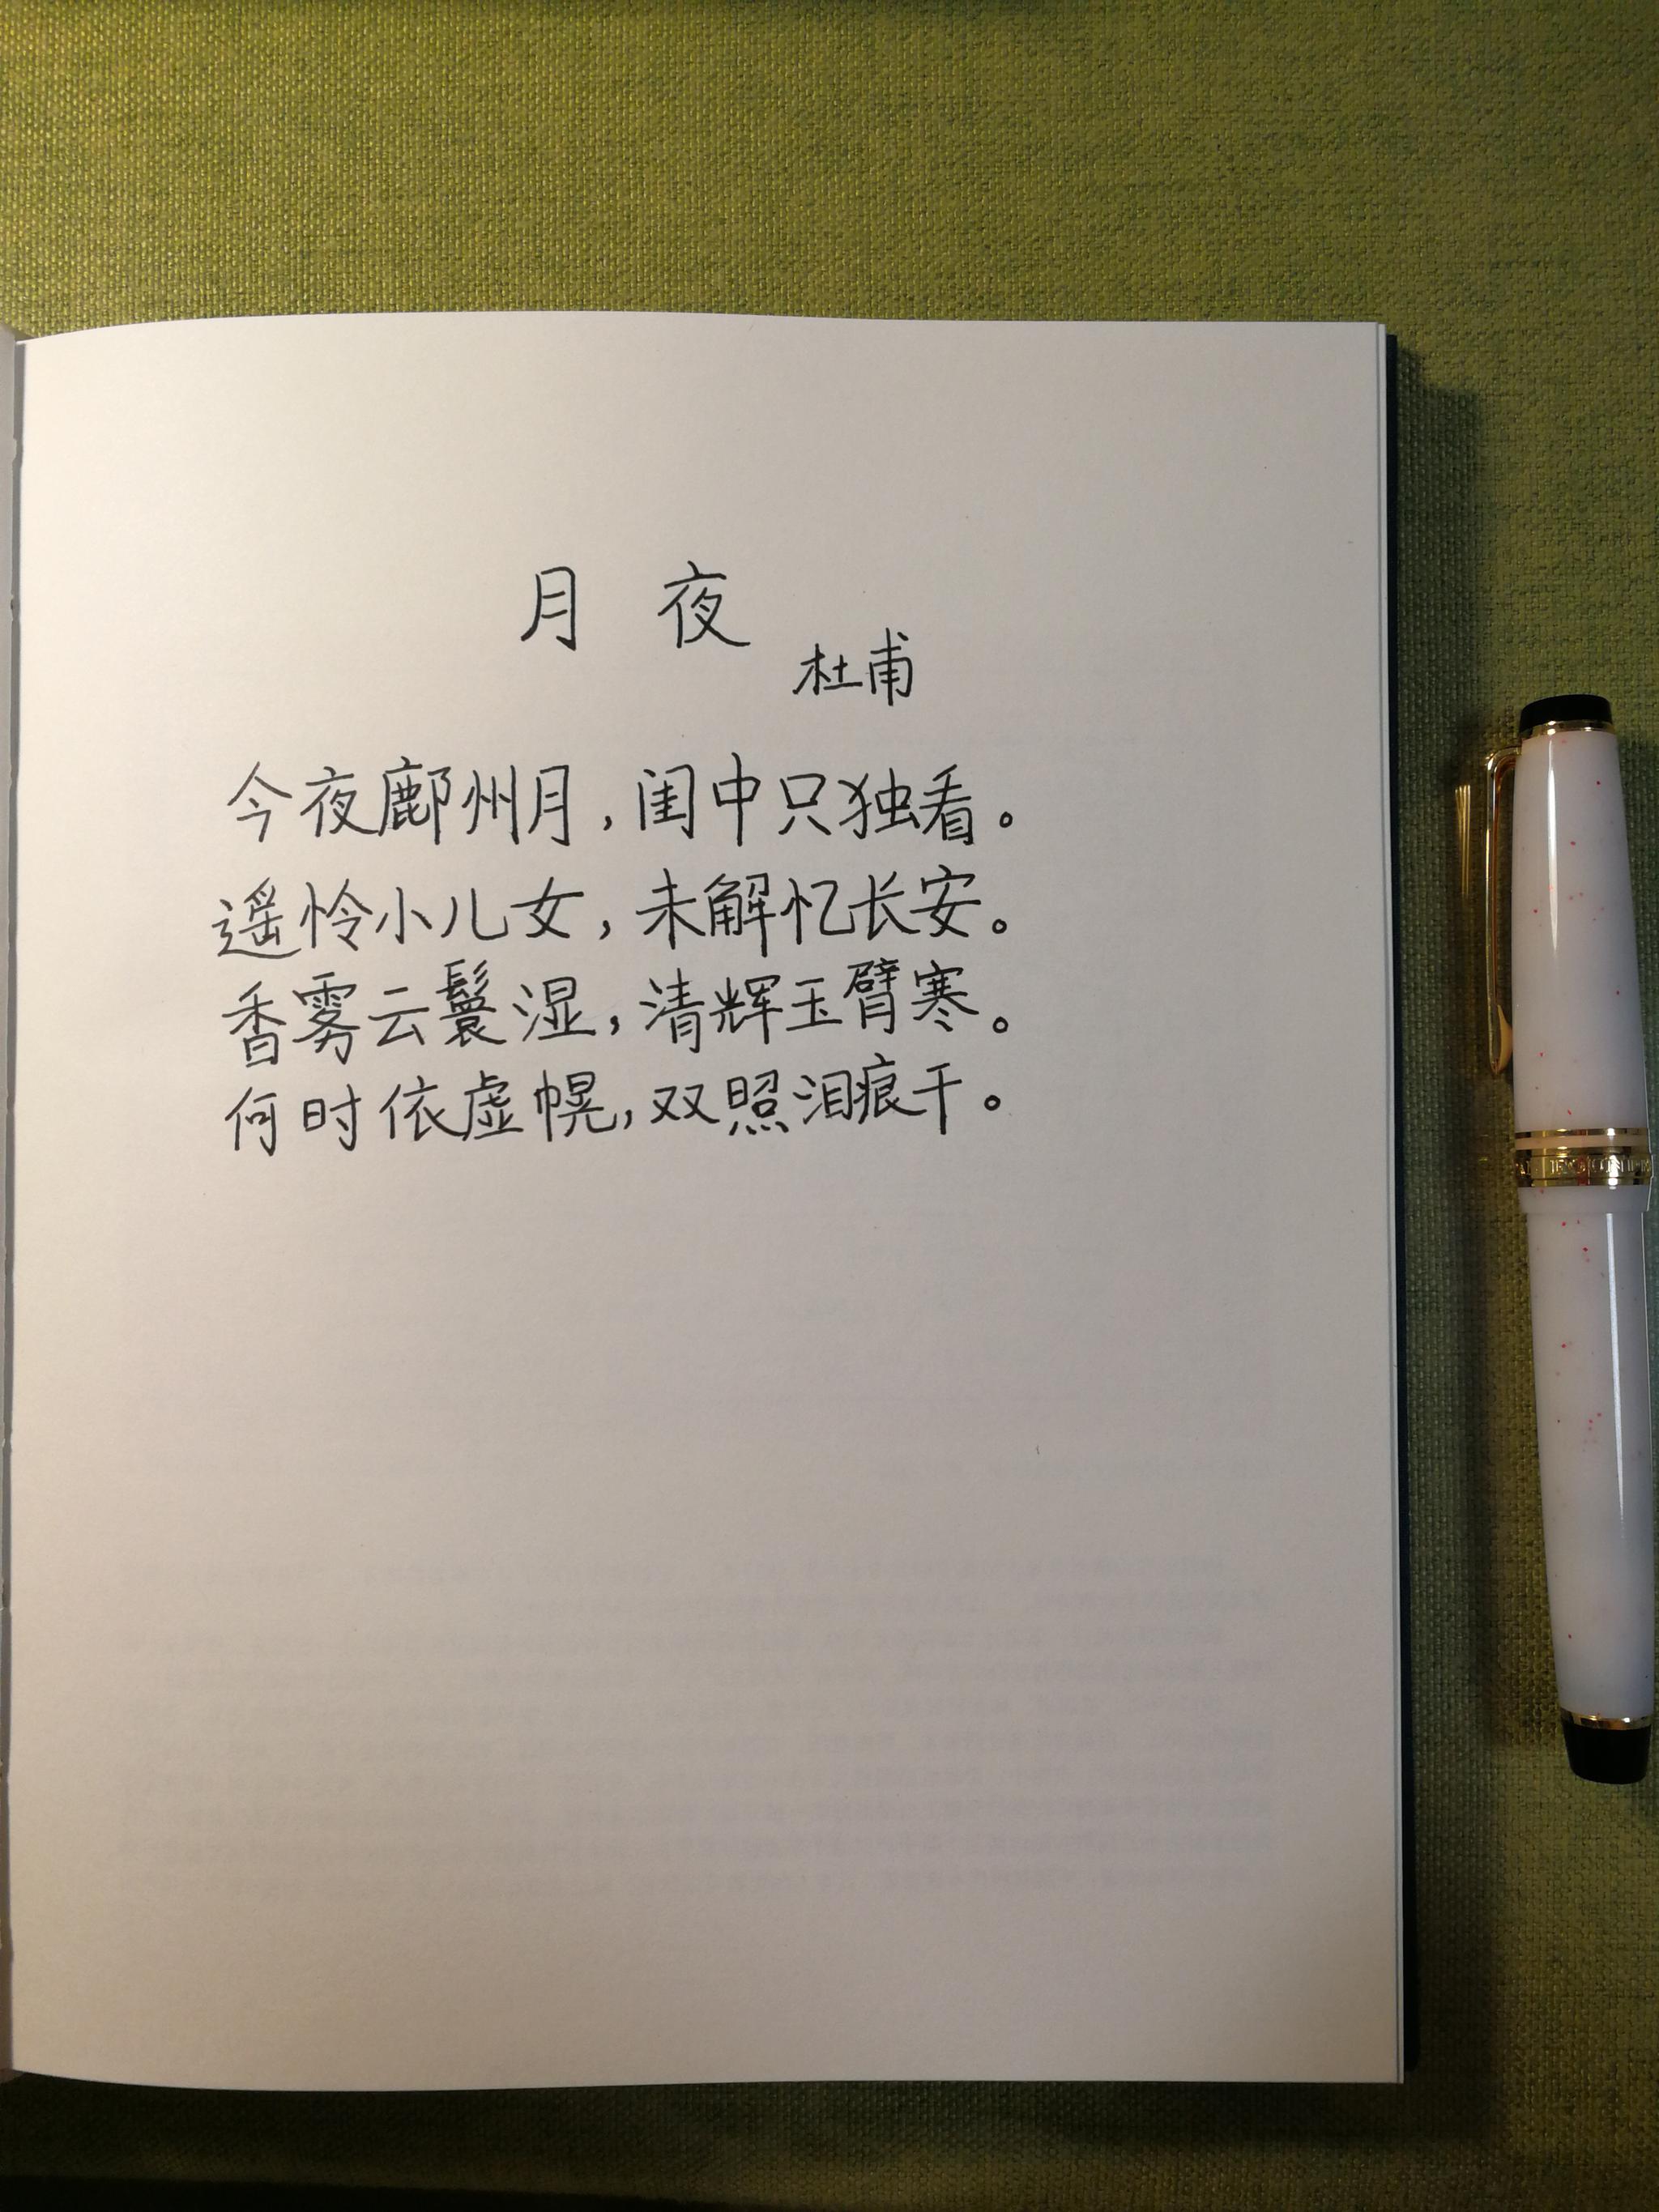 月 夜
杜甫
今夜鄜州月,闺中只独看。
遥怜小儿女,未解忆长安。
香雾云鬟湿,清辉玉臂寒。
何时依虚幌,双照泪痕干。